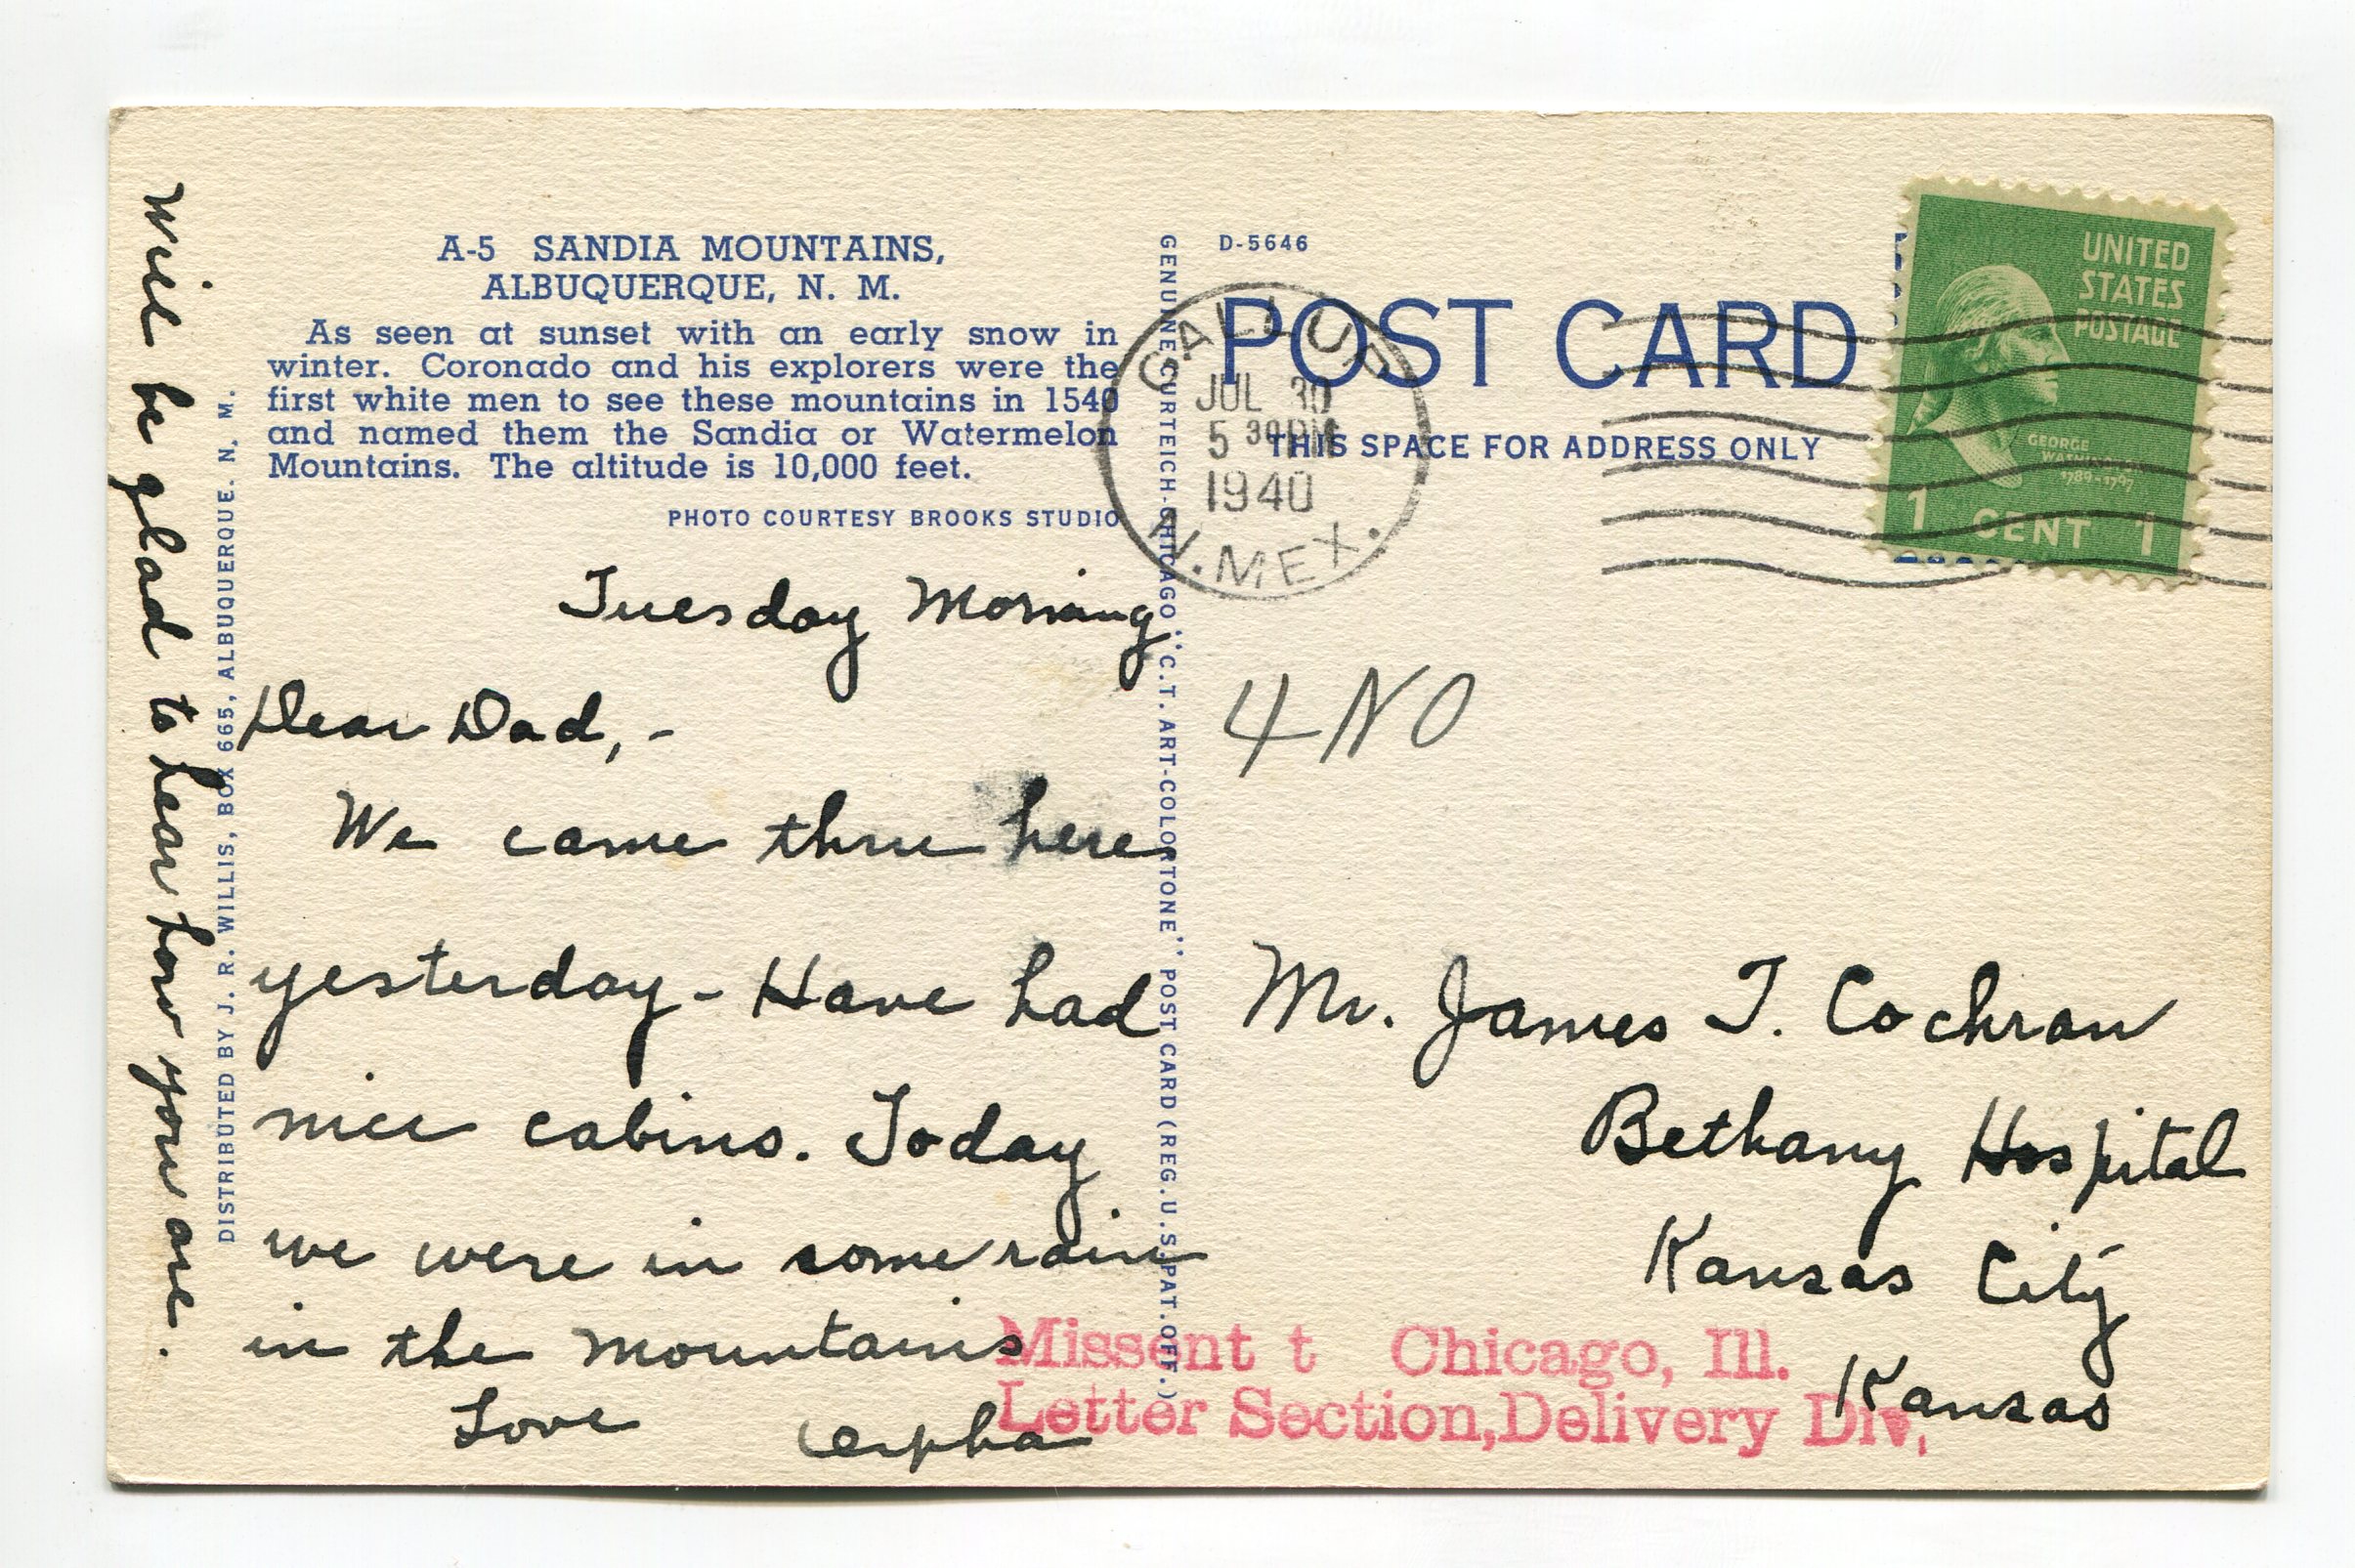 A-5 SANDIA MOUNTAINS,
ALBUQUERQUE, N. M.
As seen at sunset with an early snow in
winter. Coronado and his explorers were the
first white men to see these mountains in 1540
and named them the Sandia or Watermelon
Mountains. The altitude is 10,000 feet.
PHOTO COURTESY BROOKS STUDIO
Tuesday Morning
Dear Dad,-
We came thru here
yesterday - Have had
nice cabins. Today
we were in some rain
in the mountains
Love
Will be glad to hear how you are.
DISTRIBUTED BY J. R. WILLIS, BOX 665, ALBUQUERQUE. N. M.
GENUINE CURTEICH-CHICAGO "C.T. ART-COLORTONE" POST CARD (REG. U.S. PAT. OFF.)
D-5646
POST CARD
THIS SPACE FOR ADDRESS ONLY
GALLUP
JUL 30
5 30 PM
1940
N. MEX.
UNITED
STATES
POSTAGE
GEORGE
WASHINGTON
1789-1797
1 CENT 1
4 NO
Mr. James T. Cochran
Bethany Hospital
Kansas City
Kansas
Missent t Chicago, Ill.
Letter Section, Delivery Div.